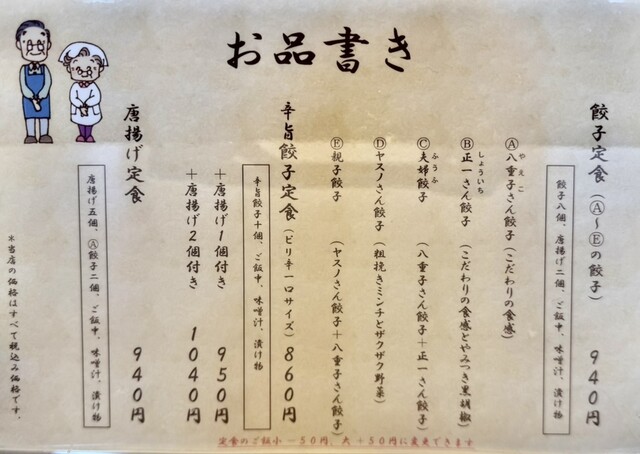 お品書き
餃子定食（Ⓐ～Ⓔの餃子） 940円
餃子八個、唐揚げ二個、ご飯中、味噌汁、漬け物
Ⓐ八重子さん餃子（こだわりの食感）
やえこ
Ⓑ正一さん餃子（こだわりの食感とやみつき黒胡椒）
しょういち
Ⓒ夫婦餃子（八重子さん餃子＋正一さん餃子）
ふうふ
Ⓓヤスノさん餃子（粗挽きミンチとザクザク野菜）
Ⓔ親子餃子（ヤスノさん餃子＋八重子さん餃子）
辛旨餃子定食（ピリ辛一口サイズ）860円
辛旨餃子十個、ご飯中、味噌汁、漬け物
＋唐揚げ1個付き 950円
＋唐揚げ2個付き 1040円
唐揚げ定食 940円
唐揚げ五個、Ⓐ餃子二個、ご飯中、味噌汁、漬け物
＊当店の価格はすべて税込み価格です。
定食のご飯小－50円、大＋50円に変更できます